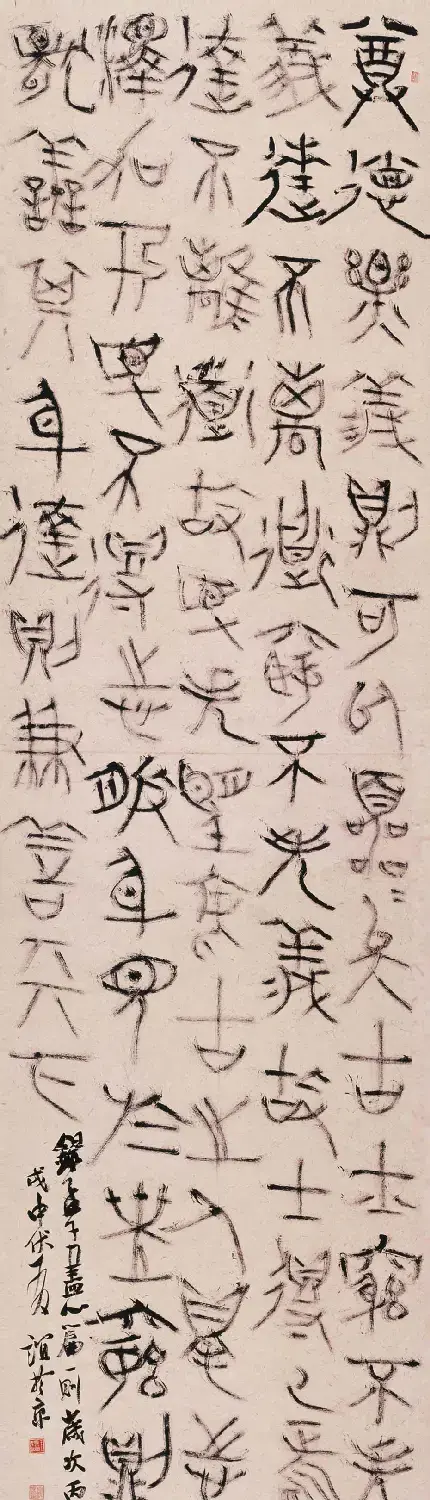 尊德樂義則可以囂〻矣古士窮不失
義達不離道窮不失義故士得己焉
達不離道故民失望焉古之人得志
澤加於民不得志脩身見於世窮則
獨善其身達則兼善天下
錄孟子盡心篇一則歲次丙
戌中伏